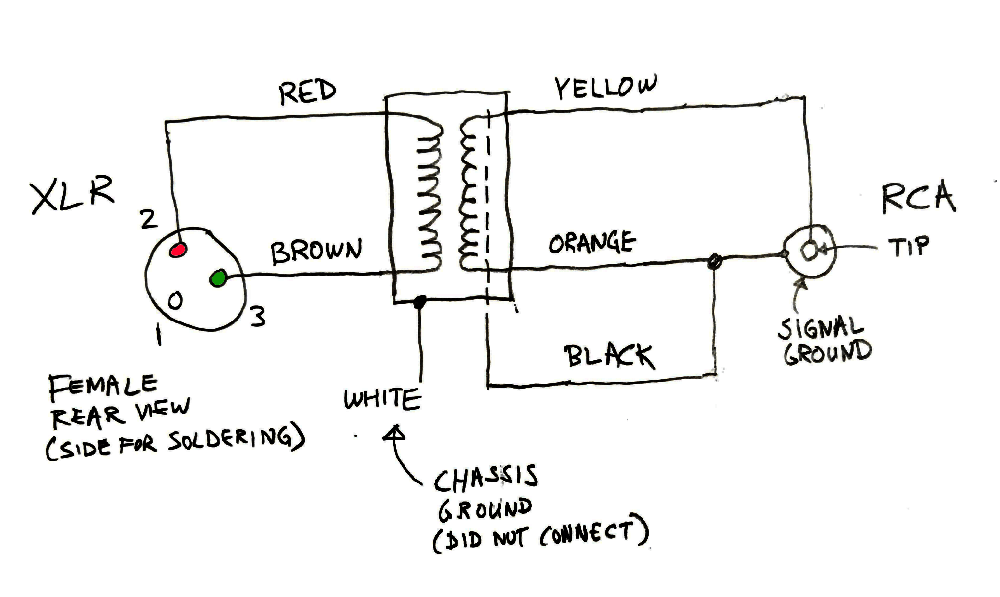 RED
YELLOW
XLR
2
BROWN
ORANGE
RCA
TIP
1
3
SIGNAL
GROUND
BLACK
FEMALE
REAR VIEW
(SIDE FOR SOLDERING)
WHITE
CHASSIS
GROUND
(DID NOT CONNECT)